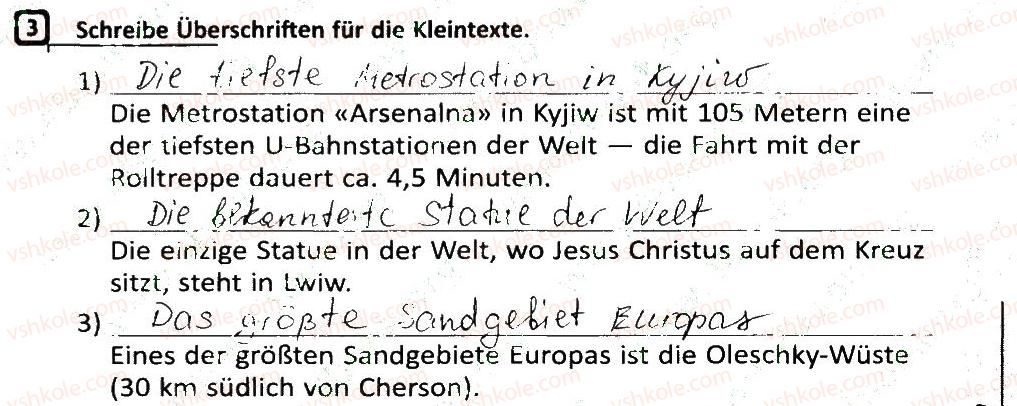 3 Schreibe Überschriften für die Kleintexte.
1) Die tiefste Metrostation in Kyjiw
Die Metrostation «Arsenalna» in Kyjiw ist mit 105 Metern eine
der tiefsten U-Bahnstationen der Welt — die Fahrt mit der
Rolltreppe dauert ca. 4,5 Minuten.
2) Die bekannteste Statue der Welt
Die einzige Statue in der Welt, wo Jesus Christus auf dem Kreuz
sitzt, steht in Lwiw.
3) Das größte Sandgebiet Europas
Eines der größten Sandgebiete Europas ist die Oleschky-Wüste
(30 km südlich von Cherson).